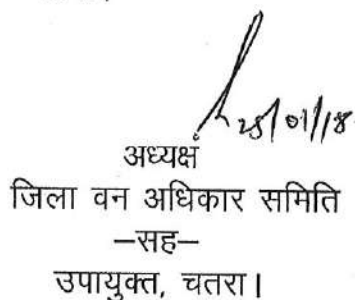 25/01/18
अध्यक्ष
जिला वन अधिकार समिति
–सह–
उपायुक्त, चतरा।